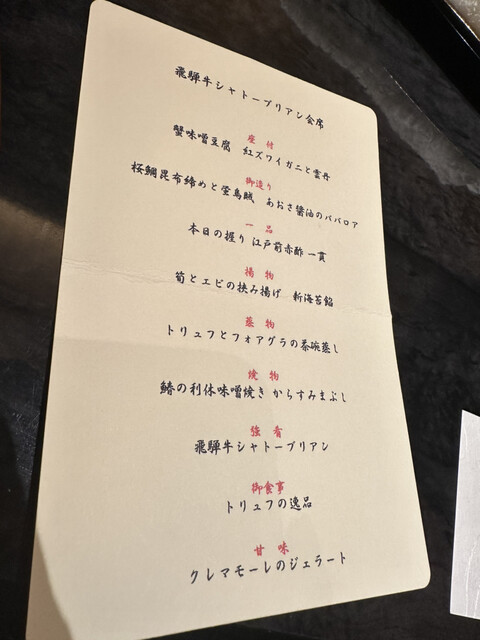 飛騨牛シャトーブリアン会席
座付
蟹味噌豆腐　紅ズワイガニと雲丹
御造り
桜鯛昆布締めと螢烏賊　あおさ醤油のババロア
一品
本日の握り 江戸前赤酢一貫
揚物
筍とエビの挟み揚げ　新海苔餡
蒸物
トリュフとフォアグラの茶碗蒸し
焼物
鰆の利休味噌焼き からすみまぶし
強肴
飛騨牛シャトーブリアン
御食事
トリュフの逸品
甘味
クレマモーレのジェラート